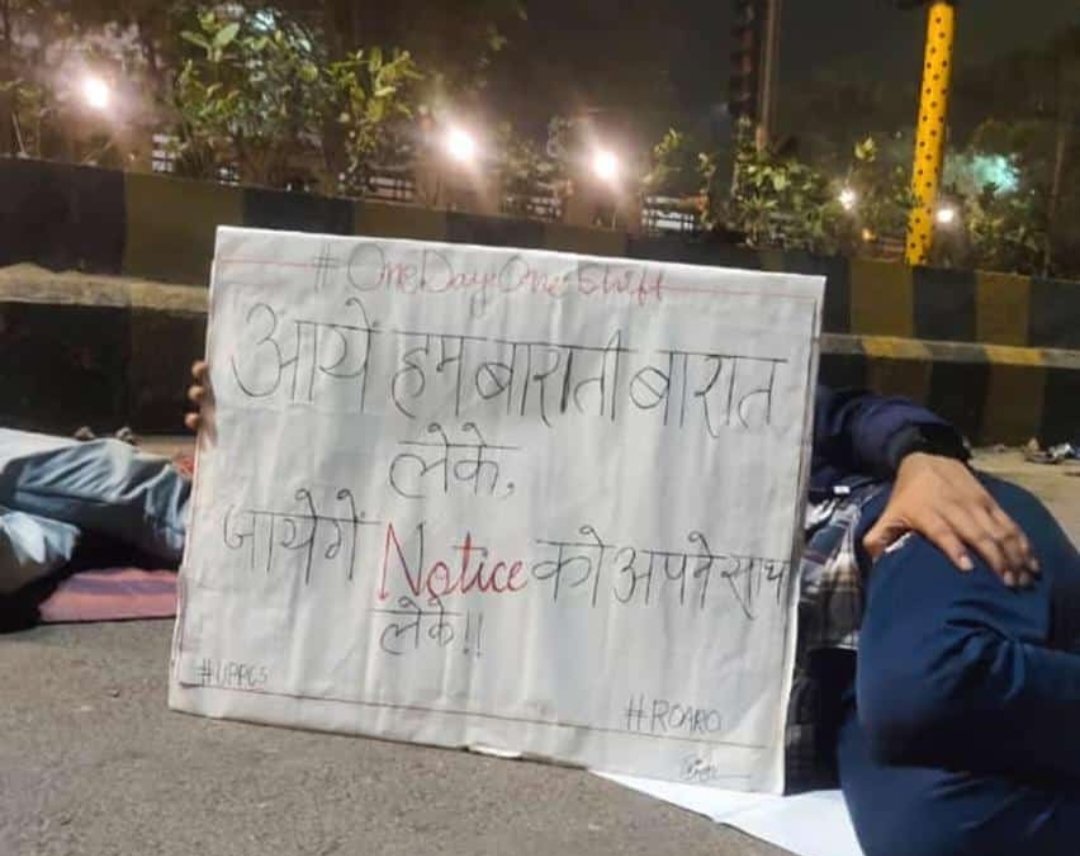 #OneDayOneShift
आये हम बाराती बारात
लेके,
जायेगें Notice को अपने साथ
लेके!!
#UPPCS
#ROARO